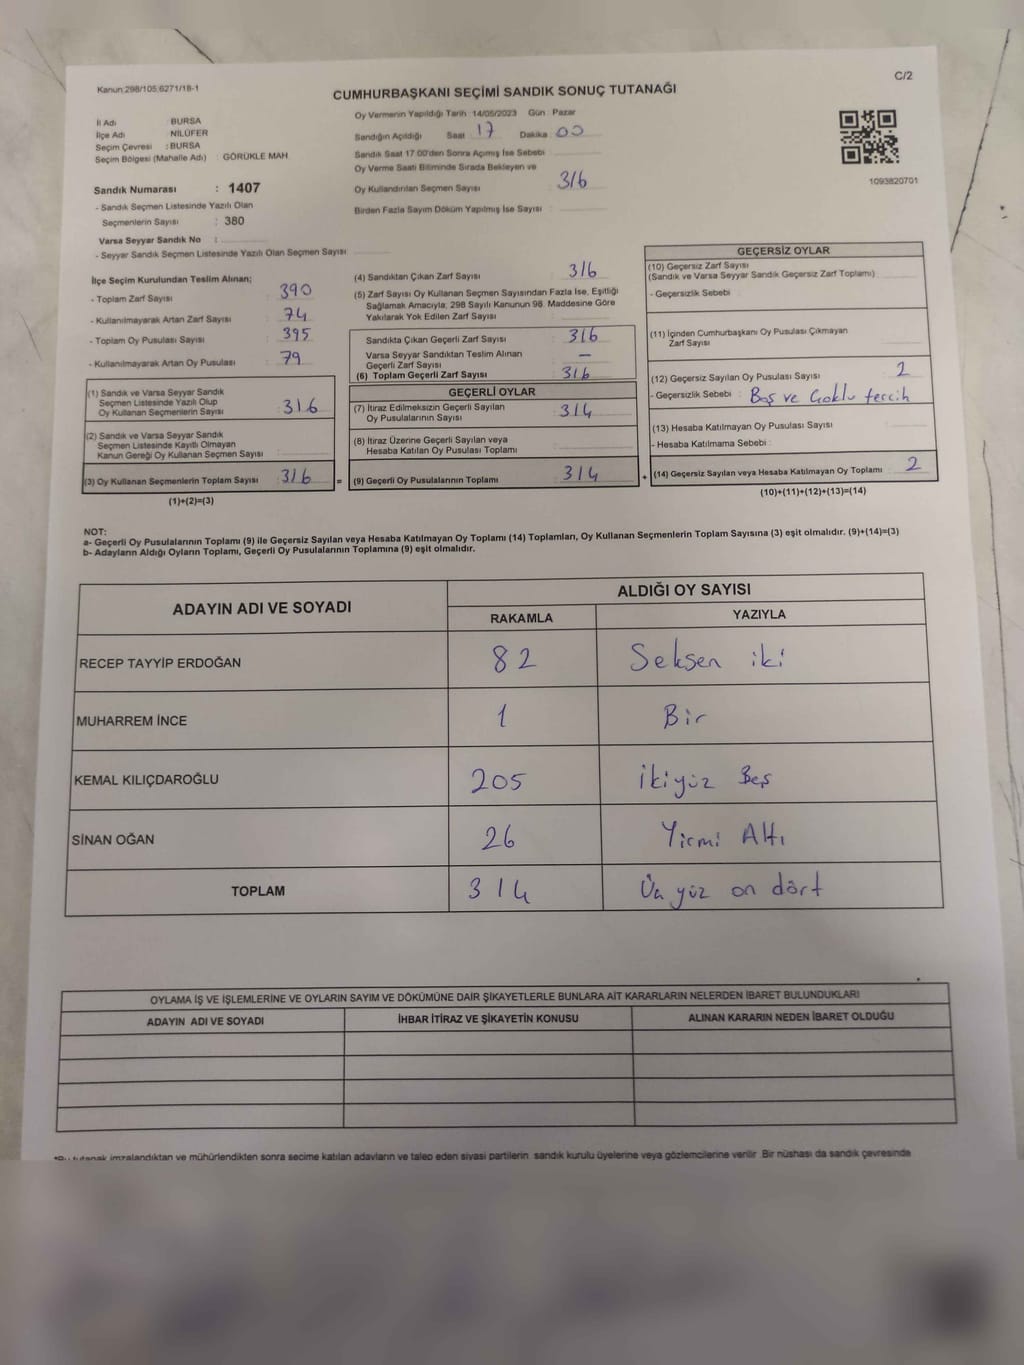 C/2
Kanun:298/105,6271/18-1
CUMHURBAŞKANI SEÇİMİ SANDIK SONUÇ TUTANAĞI
İl Adı BURSA
İlçe Adı NİLÜFER
Seçim Çevresi : BURSA
Seçim Bölgesi (Mahalle Adı) : GÖRÜKLE MAH.
Sandık Numarası : 1407
- Sandık Seçmen Listesinde Yazılı Olan
Seçmenlerin Sayısı : 380
Varsa Seyyar Sandık No :
- Seyyar Sandık Seçmen Listesinde Yazılı Olan Seçmen Sayısı
Oy Vermenin Yapıldığı Tarih 14/05/2023 Gün Pazar
Sandığın Açıldığı Saat 17 Dakika 00
Sandık Saat 17.00'den Sonra Açılmış İse Sebebi
Oy Verme Saati Bitiminde Sırada Bekleyen ve
Oy Kullandırılan Seçmen Sayısı 316
Birden Fazla Sayım Döküm Yapılmış İse Sayısı
1093820701
İlçe Seçim Kurulundan Teslim Alınan;
- Toplam Zarf Sayısı 390
- Kullanılmayarak Artan Zarf Sayısı 74
- Toplam Oy Pusulası Sayısı 395
- Kullanılmayarak Artan Oy Pusulası 79
(1) Sandık ve Varsa Seyyar Sandık
Seçmen Listesinde Yazılı Olup
Oy Kullanan Seçmenlerin Sayısı 316
(2) Sandık ve Varsa Seyyar Sandık
Seçmen Listesinde Kayıtlı Olmayan
Kanun Gereği Oy Kullanan Seçmen Sayısı
(3) Oy Kullanan Seçmenlerin Toplam Sayısı : 316 =
(1)+(2)=(3)
(4) Sandıktan Çıkan Zarf Sayısı 316
(5) Zarf Sayısı Oy Kullanan Seçmen Sayısından Fazla İse, Eşitliği
Sağlamak Amacıyla; 298 Sayılı Kanunun 98. Maddesine Göre
Yakılarak Yok Edilen Zarf Sayısı
Sandıkta Çıkan Geçerli Zarf Sayısı 316
Varsa Seyyar Sandıktan Teslim Alınan
Geçerli Zarf Sayısı —
(6) Toplam Geçerli Zarf Sayısı 316
GEÇERLİ OYLAR
(7) İtiraz Edilmeksizin Geçerli Sayılan
Oy Pusulalarının Sayısı 314
(8) İtiraz Üzerine Geçerli Sayılan veya
Hesaba Katılan Oy Pusulası Toplamı
(9) Geçerli Oy Pusulalarının Toplamı 314 +
GEÇERSİZ OYLAR
(10) Geçersiz Zarf Sayısı
(Sandık ve Varsa Seyyar Sandık Geçersiz Zarf Toplamı)
- Geçersizlik Sebebi
(11) İçinden Cumhurbaşkanı Oy Pusulası Çıkmayan
Zarf Sayısı
(12) Geçersiz Sayılan Oy Pusulası Sayısı 2
- Geçersizlik Sebebi : Boş ve Çoklu tercih
(13) Hesaba Katılmayan Oy Pusulası Sayısı
- Hesaba Katılmama Sebebi :
(14) Geçersiz Sayılan veya Hesaba Katılmayan Oy Toplamı 2
(10)+(11)+(12)+(13)=(14)
NOT:
a- Geçerli Oy Pusulalarının Toplamı (9) ile Geçersiz Sayılan veya Hesaba Katılmayan Oy Toplamı (14) Toplamları, Oy Kullanan Seçmenlerin Toplam Sayısına (3) eşit olmalıdır. (9)+(14)=(3)
b- Adayların Aldığı Oyların Toplamı, Geçerli Oy Pusulalarının Toplamına (9) eşit olmalıdır.
ADAYIN ADI VE SOYADI
ALDIĞI OY SAYISI
RAKAMLA YAZIYLA
RECEP TAYYİP ERDOĞAN 82 Seksen iki
MUHARREM İNCE 1 Bir
KEMAL KILIÇDAROĞLU 205 ikiyüz Beş
SİNAN OĞAN 26 Yirmi Altı
TOPLAM 314 Üç yüz on dört
OYLAMA İŞ VE İŞLEMLERİNE VE OYLARIN SAYIM VE DÖKÜMÜNE DAİR ŞİKAYETLERLE BUNLARA AİT KARARLARIN NELERDEN İBARET BULUNDUKLARI
ADAYIN ADI VE SOYADI İHBAR İTİRAZ VE ŞİKAYETİN KONUSU ALINAN KARARIN NEDEN İBARET OLDUĞU
*Bu tutanak imzalandıktan ve mühürlendikten sonra seçime katılan adayların ve talep eden siyasi partilerin sandık kurulu üyelerine veya gözlemcilerine verilir. Bir nüshası da sandık çevresinde